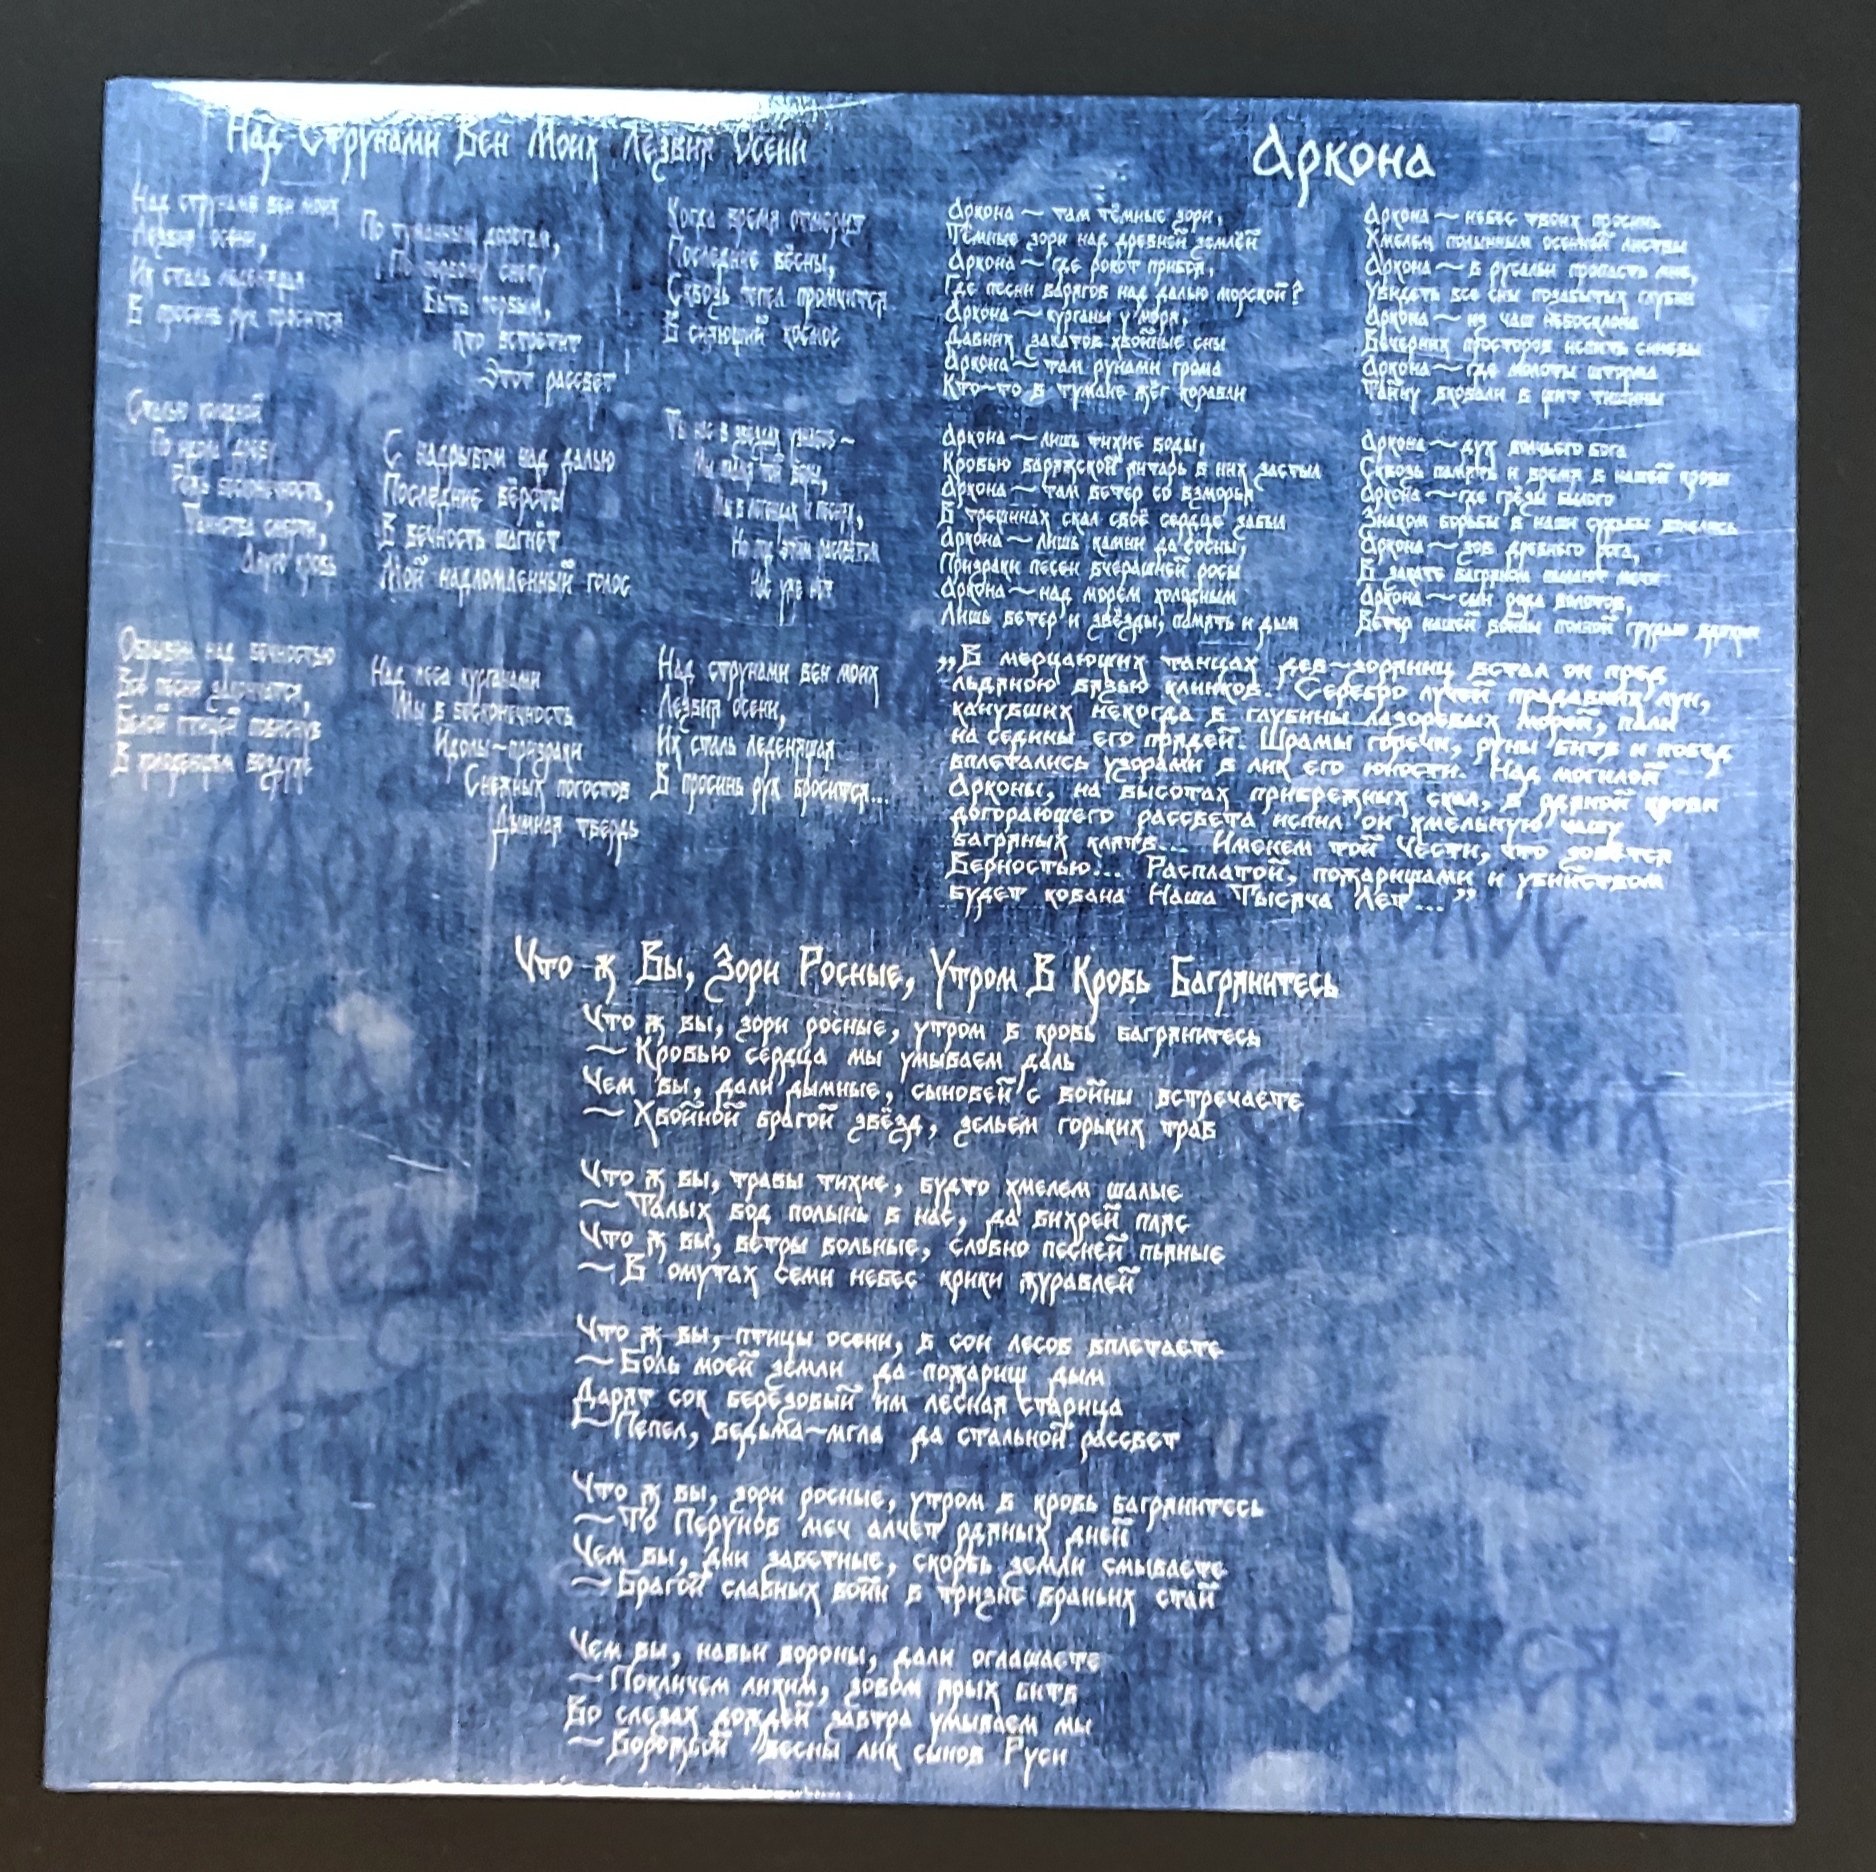 Над Струнами Вен Моих Лезвия Осени
Над струнами вен моих
Лезвия осени,
Их сталь леденящая
В просинь рук просится
Сталью холодной
По
Ведь бесконечность,
Таинства смерти,
Алую кровь
Обрывом над вечностью
Все песни закончатся,
Белой птицей
В холодеющем воздухе
По туманным дорогам,
По первому снегу
Быть первым,
Кто встретит
Этот рассвет
С надрывом над далью
Последние вёрсты
В вечность шагнёт
Мой надломленный голос
Над леса курганами
Мы в бесконечность
Идолы~призраки
Снежных погостов
Дымная твердь
Когда время отмерит
Последние вёсны,
Сквозь пепел промчится
В сияющий космос
Ты нас в звездах узнаешь~
Мы
Мы в легендах и песнях,
Но под этим рассветом
Нас уже нет
Над струнами вен моих
Лезвия осени,
Их сталь леденящая
В просинь рук бросится...
Аркона
Аркона ~ там тёмные зори,
Тёмные зори над древней землёй
Аркона ~ где рокот прибоя,
Где песни варягов над далью морской?
Аркона ~ курганы у моря,
Давних закатов хвойные сны
Аркона ~ там рунами грома
Кто~то в тумане жёг корабли
Аркона ~ лишь тихие воды,
Кровью варяжской янтарь в них застыл
Аркона ~ там ветер со взморья
В трещинах скал своё сердце забыл
Аркона ~ лишь камни да сосны,
Призраки песен вчерашней росы
Аркона ~ над морем холодным
Лишь ветер и звёзды, память и дым
Аркона ~ небес твоих просинь
Хмелем полынным осенней листвы
Аркона ~ в русальи пропасть мне,
Увидеть все сны позабытых глубин
Аркона ~ из чаш небосклона
Вечерних просторов испить синевы
Аркона ~ где молоты шторма
Тайну вковали в щит тишины
Аркона ~ дух волчьего бога
Сквозь память и время в нашей крови
Аркона ~ где грёзы былого
Знаком борьбы в наши судьбы вплелись
Аркона ~ зов древнего рога,
В закате багряном пылают мечи
Аркона ~ сын рода волотов,
Ветер нашей войны полной грудью вдохни
„В мерцающих танцах дев~зоряниц встал он пред
льдяною вязью клинков. Серебро лучей прадавних лун,
канувших некогда в глубины лазоревых морей, пали
на седины его прядей. Шрамы горечи, руны битв и побед
вплетались узорами в лик его юности. Над могилой
Арконы, на высотах прибрежных скал, в рдяной крови
догорающего рассвета испил он хмельную чашу
багряных клятв... Именем той Чести, что зовётся
Верностью... Расплатой, пожарищами и убийством
будет кована Наша Тысяча Лет...”
Что ж Вы, Зори Росные, Утром В Кровь Багрянитесь
Что ж вы, зори росные, утром в кровь багрянитесь
~ Кровью сердца мы умываем даль
Чем вы, дали дымные, сыновей с войны встречаете
~ Хвойной брагой звёзд, зельем горьких трав
Что ж вы, травы тихие, будто хмелем шалые
~ Талых вод полынь в нас, да вихрей пляс
Что ж вы, ветры вольные, словно песней пьяные
~ В омутах семи небес крики журавлей
Что ж вы, птицы осени, в сон лесов вплетаете
~ Боль моей земли да пожарищ дым
Дарят сок берёзовый им лесная старица
~ Пепел, ведьма~мгла да стальной рассвет
Что ж вы, зори росные, утром в кровь багрянитесь
~ То Перунов меч алчет рдяных дней
Чем вы, дни заветные, скорбь земли смываете
~ Брагой славных войн в тризне враньих стай
Чем вы, навьи вороны, дали оглашаете
~ Покличем лихим, зовом ярых битв
Во слезах дождей завтра умываем мы
~ Ворожбой весны лик сынов Руси